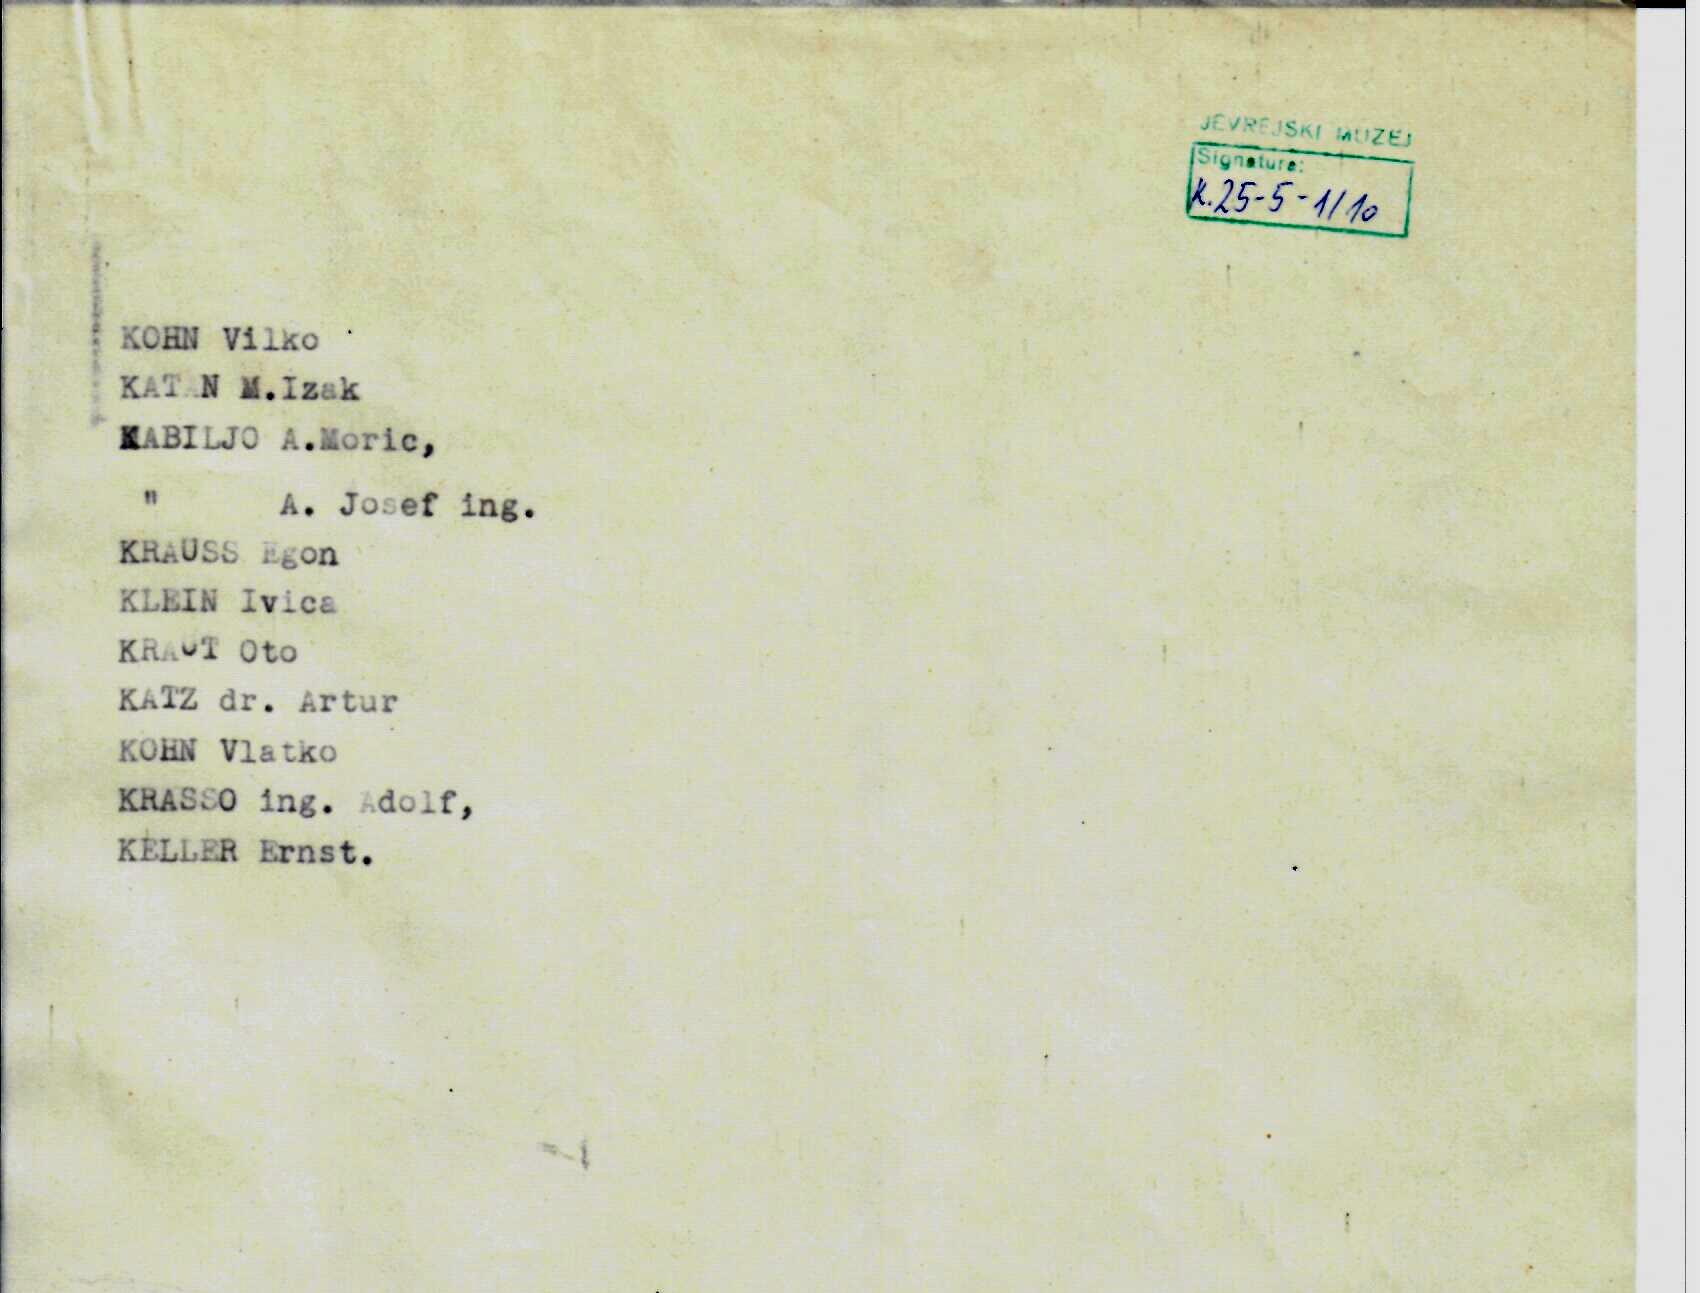 JEVREJSKI MUZEJ
Signatura:
K.25-5-1/10
KOHN Vilko
KATAN M.Izak
KABILJO A.Moric,
" A. Josef ing.
KRAUSS Egon
KLEIN Ivica
KRAUT Oto
KATZ dr. Artur
KOHN Vlatko
KRASSO ing. Adolf,
KELLER Ernst.